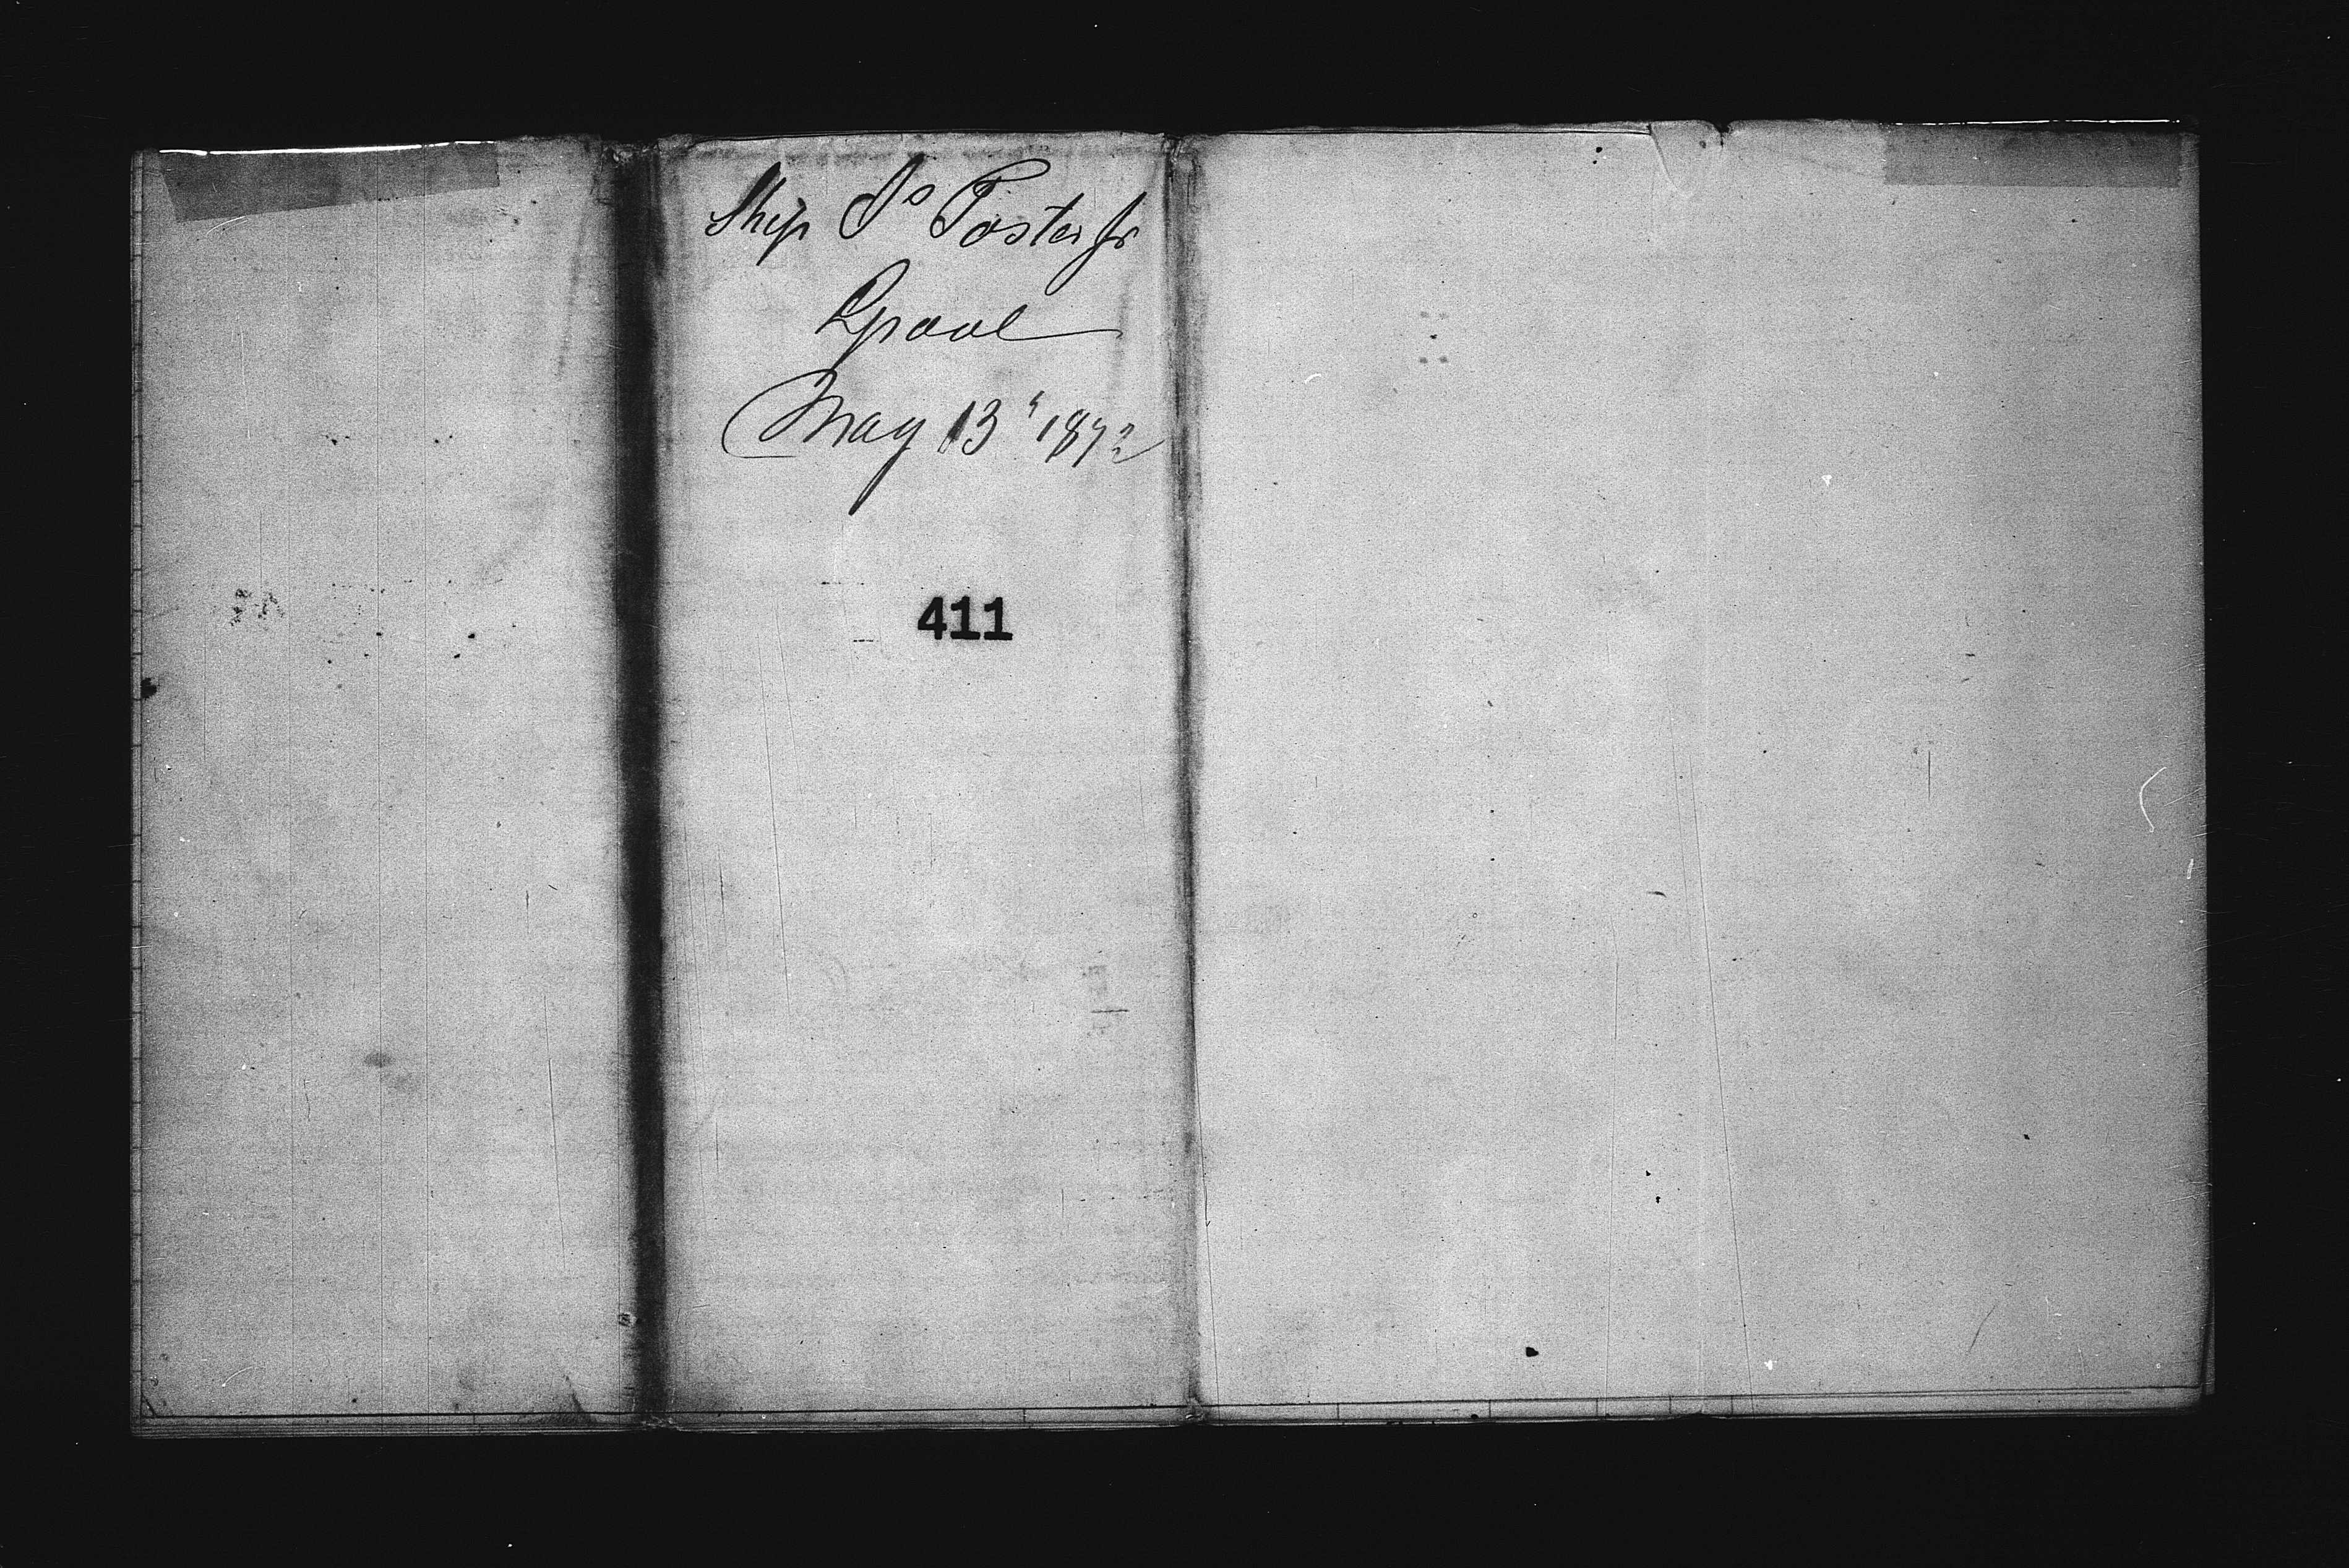 Ship Js Foster Jr
Lpool
May 13" 1872
411